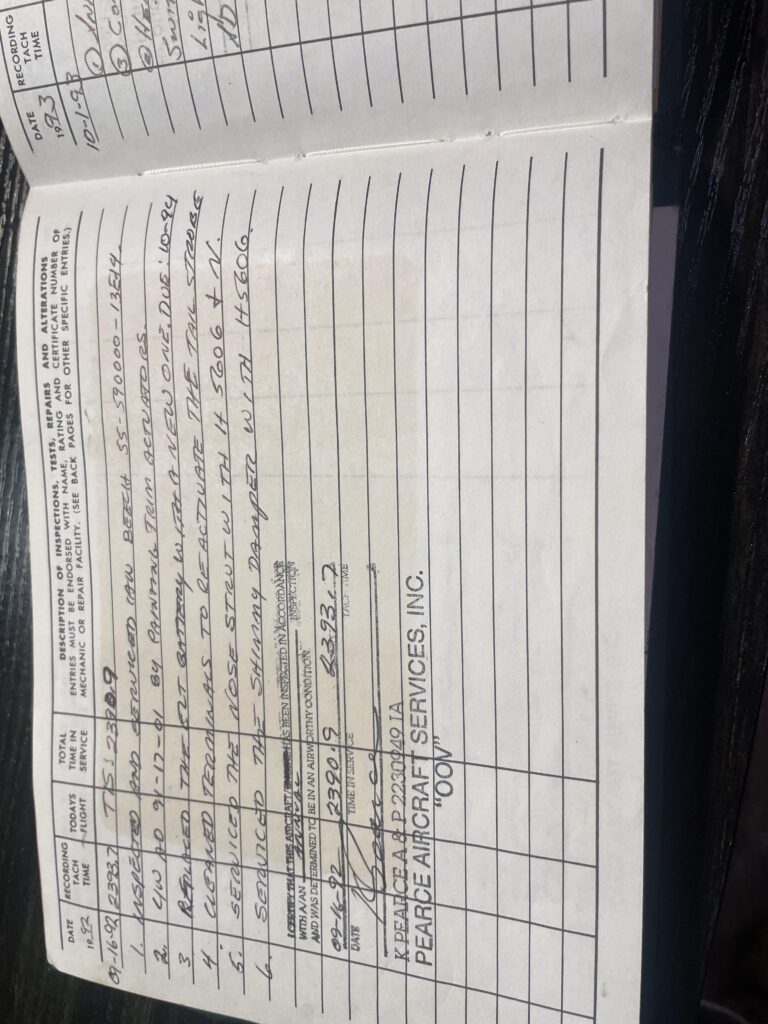 DATE
19 92
RECORDING TACH TIME
TODAYS FLIGHT
TOTAL TIME IN SERVICE
DESCRIPTION OF INSPECTIONS, TESTS, REPAIRS AND ALTERATIONS
ENTRIES MUST BE ENDORSED WITH NAME, RATING AND CERTIFICATE NUMBER OF
MECHANIC OR REPAIR FACILITY. (SEE BACK PAGES FOR OTHER SPECIFIC ENTRIES.)
09-16-92 2393.7 TIS: 2390.9
1. INSPECTED AND SERVICED IAW BEECH 55-590000-13E14.
2. C/W AD 91-17-01 BY PAINTING TRIM ACTUATORS
3 REPLACED THE ELT BATTERY WITH A NEW ONE. DUE: 10-94
4 CLEANED TERMINALS TO REACTIVATE THE TAIL STROBE
5. SERVICED THE NOSE STRUT WITH H 5606 + N.
6. SERVICED THE SHIMMY DAMPER WITH H5606.
I CERTIFY THAT THIS AIRCRAFT/ HAS BEEN INSPECTED IN ACCORDANCE
WITH A/AN ANNUAL INSPECTION
AND WAS DETERMINED TO BE IN AN AIRWORTHY CONDITION.
09-16-92 2390.9 2393.7
DATE TIME IN SERVICE TACH TIME
K Pearce
K PEARCE A & P 2230949 IA
PEARCE AIRCRAFT SERVICES, INC.
"OON"
DATE
19 93
RECORDING TACH TIME
10-1-93
①
③